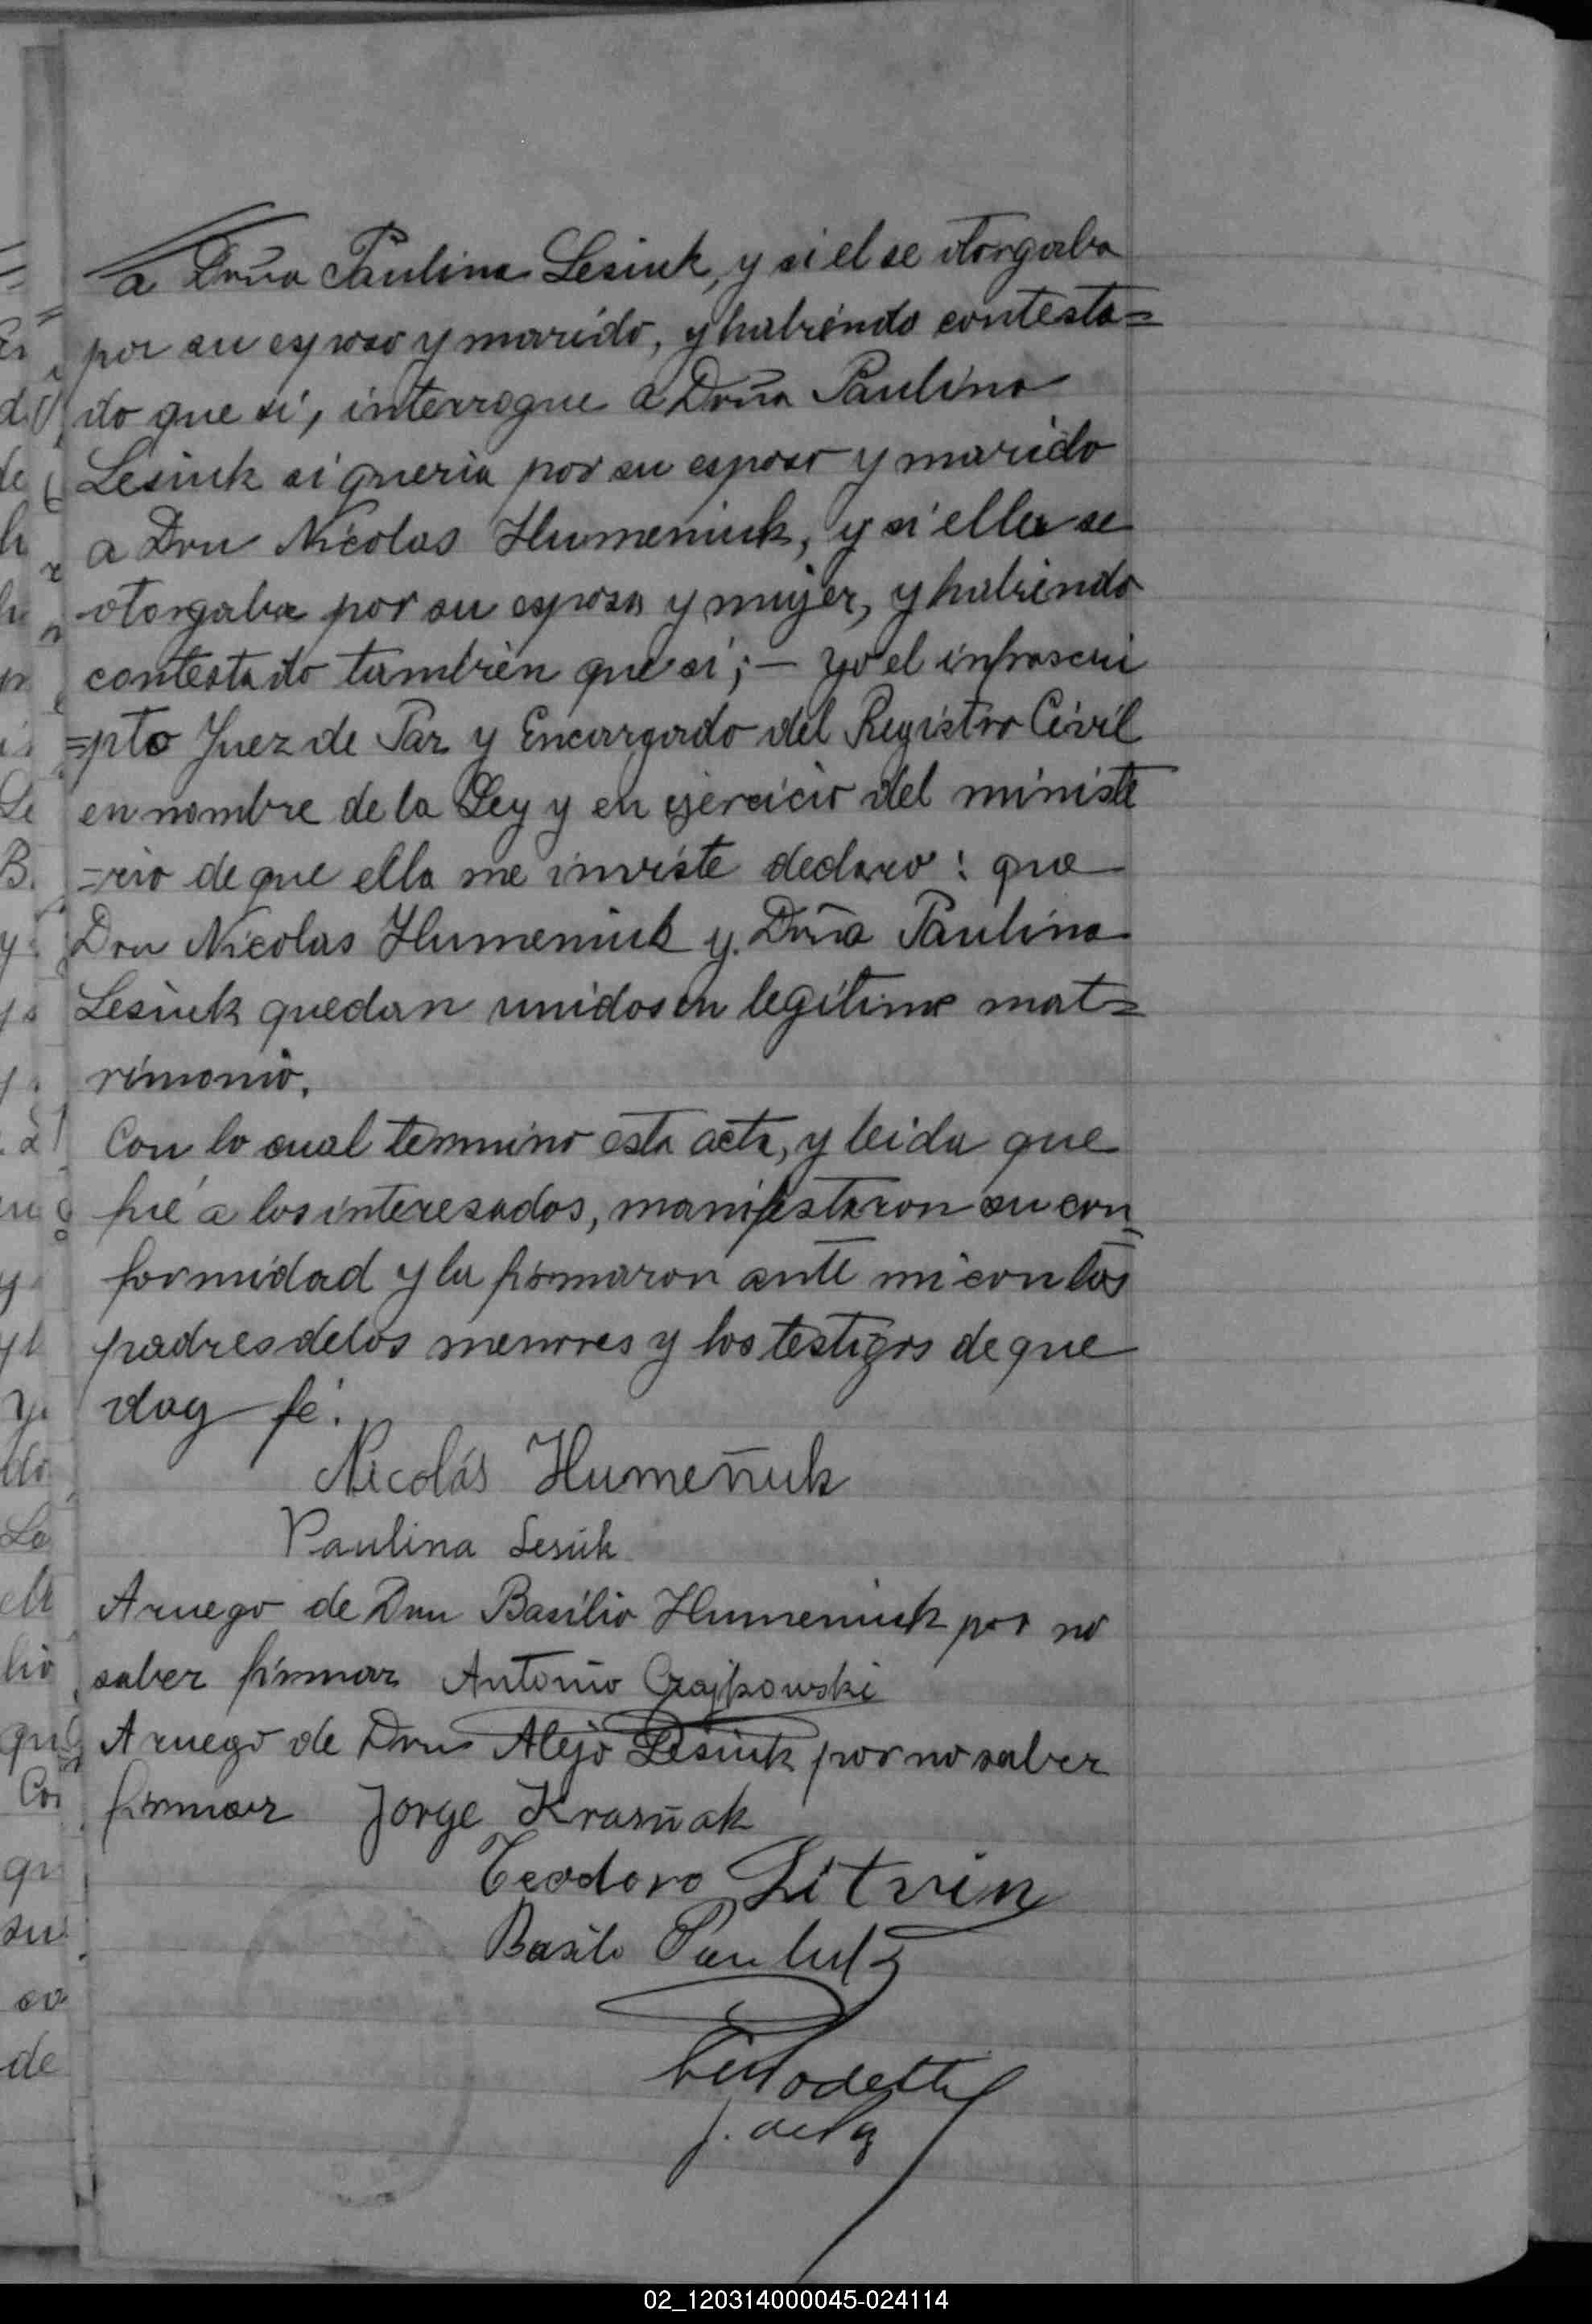 a Doña Paulina Lesiuk, y si el se otorgaba
por su esposo y marido, y habiendo contesta=
do que si, interrogue a Doña Paulina
Lesiuk si queria por su esposo y marido
a Don Nicolas Humeniuk, y si ella se
otorgaba por su esposa y mujer, y habiendo
contestado tambien que si; — yo el infrascri
=pto Juez de Paz y Encargado del Registro Civil
en nombre de la Ley y en ejercicio del ministe
=rio de que ella me inviste declaro: que
Don Nicolas Humeniuk y Doña Paulina
Lesiuk quedan unidos en legitimo mat=
rimonio.
Con lo cual termino esta acta, y leida que
fué a los interesados, manifestaron su con=
formidad y la firmaron ante mi con los
padres de los menores y los testigos de que
doy fé.
Nicolás Humeñuk
Paulina Lesiuk
A ruego de Don Basilio Humeniuk por no
saber firmar Antonio Czajkowski
A ruego de Don Alejo Lesiuk por no saber
firmar Jorge Krasñak
Teodoro Litvin
Basilo
J. de Paz
02_120314000045-024114